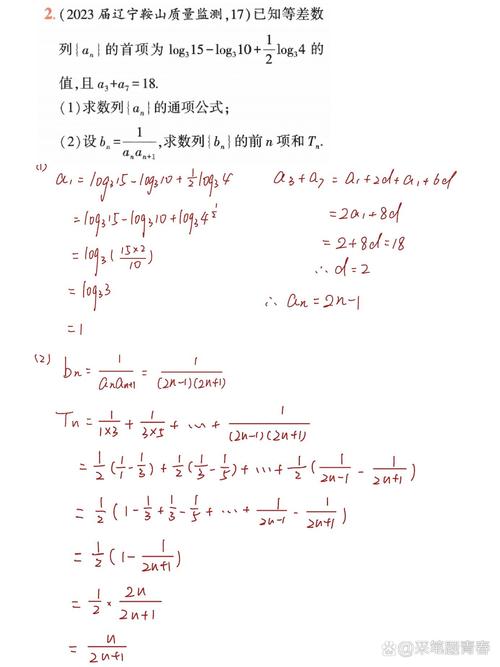 2.(2023 届辽宁鞍山质量监测,17)已知等差数
列{aₙ}的首项为 log₃15-log₃10+1/2log₃4 的
值,且 a₃+a₇=18.
(1)求数列{aₙ}的通项公式;
(2)设 bₙ=1/(aₙaₙ₊₁),求数列{bₙ}的前 n 项和 Tₙ.
(1) a₁=log₃15-log₃10+1/2log₃4
=log₃15-log₃10+log₃4^(1/2)
=log₃(15×2/10)
=log₃3
=1
a₃+a₇=a₁+2d+a₁+6d
=2a₁+8d
=2+8d=18
∴d=2
∴aₙ=2n-1
(2) bₙ=1/(aₙaₙ₊₁)=1/((2n-1)(2n+1))
Tₙ=1/(1×3)+1/(3×5)+…+1/((2n-1)(2n+1))
=1/2(1/1-1/3)+1/2(1/3-1/5)+…+1/2(1/(2n-1)-1/(2n+1))
=1/2(1-1/3+1/3-1/5+…+1/(2n-1)-1/(2n+1))
=1/2(1-1/(2n+1))
=1/2·2n/(2n+1)
=n/(2n+1)
Bai知道 @采笔画青春